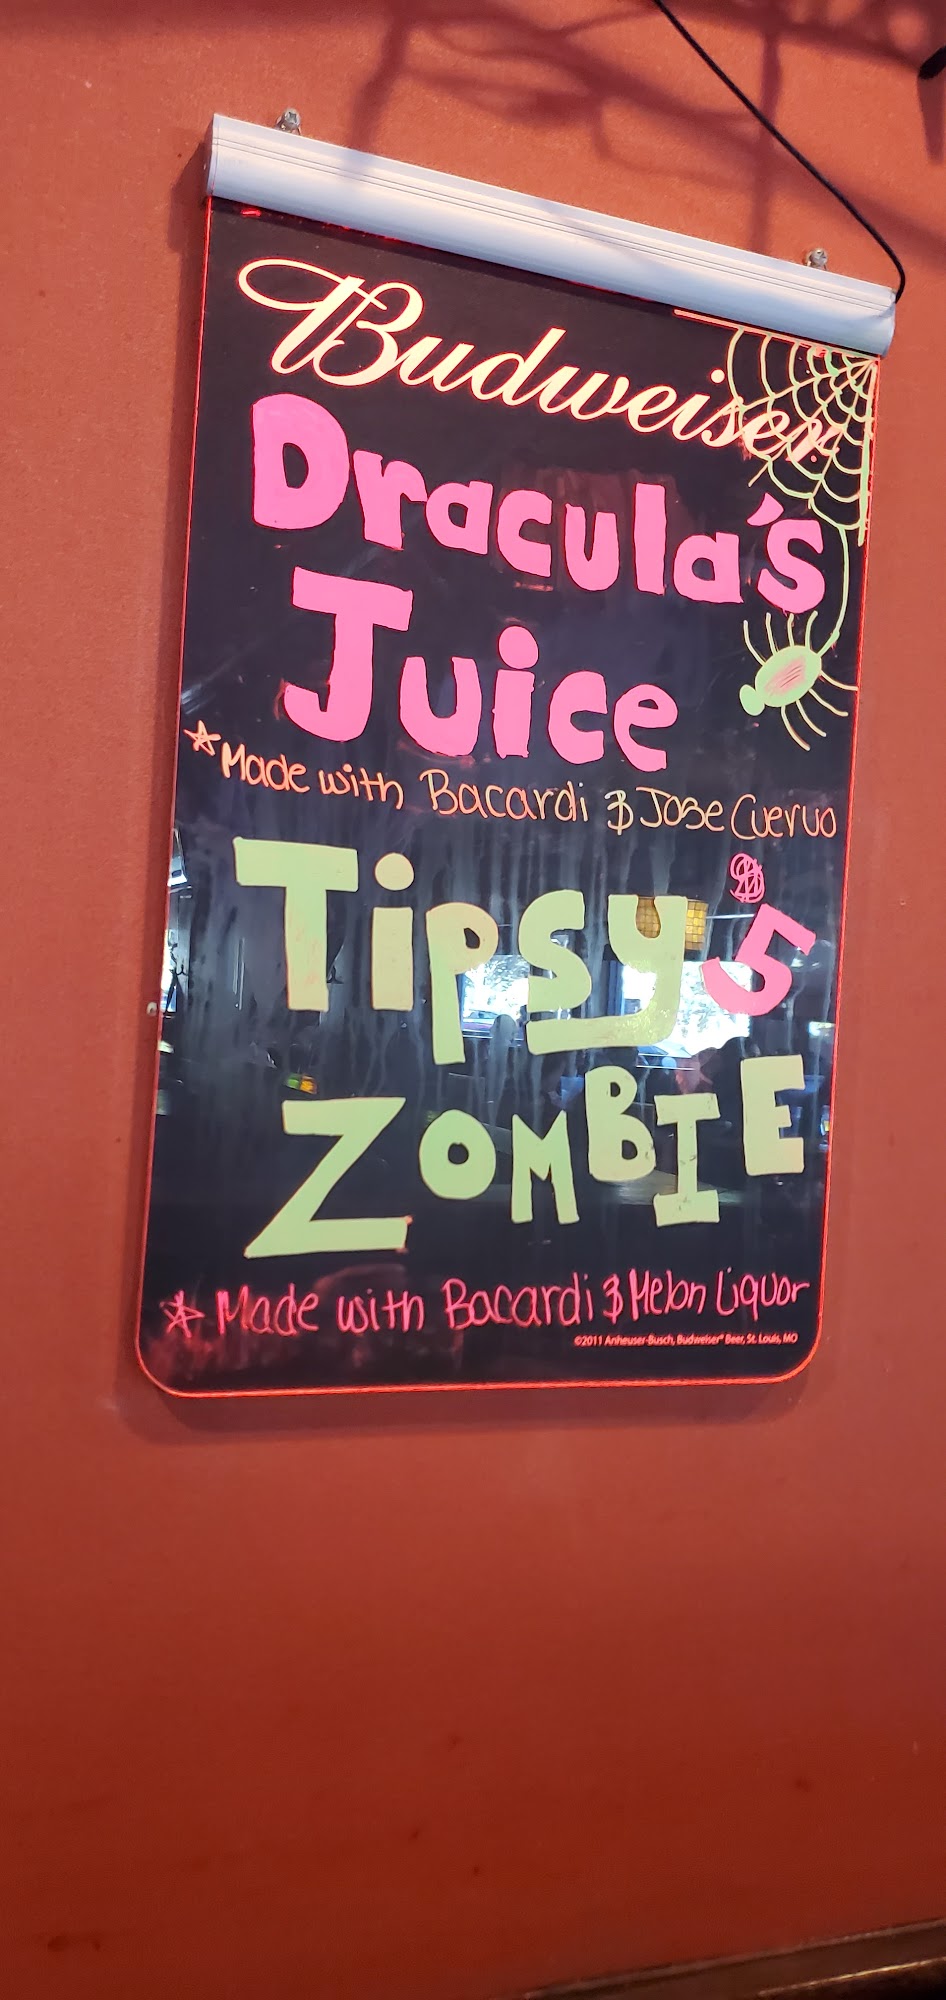 Budweiser
Dracula's
Juice
*Made with Bacardi & Jose Cuervo
Tipsy $5
ZOMBIE
* Made with Bacardi & Melon Liquor
©2011 Anheuser-Busch, Budweiser® Beer, St. Louis, MO